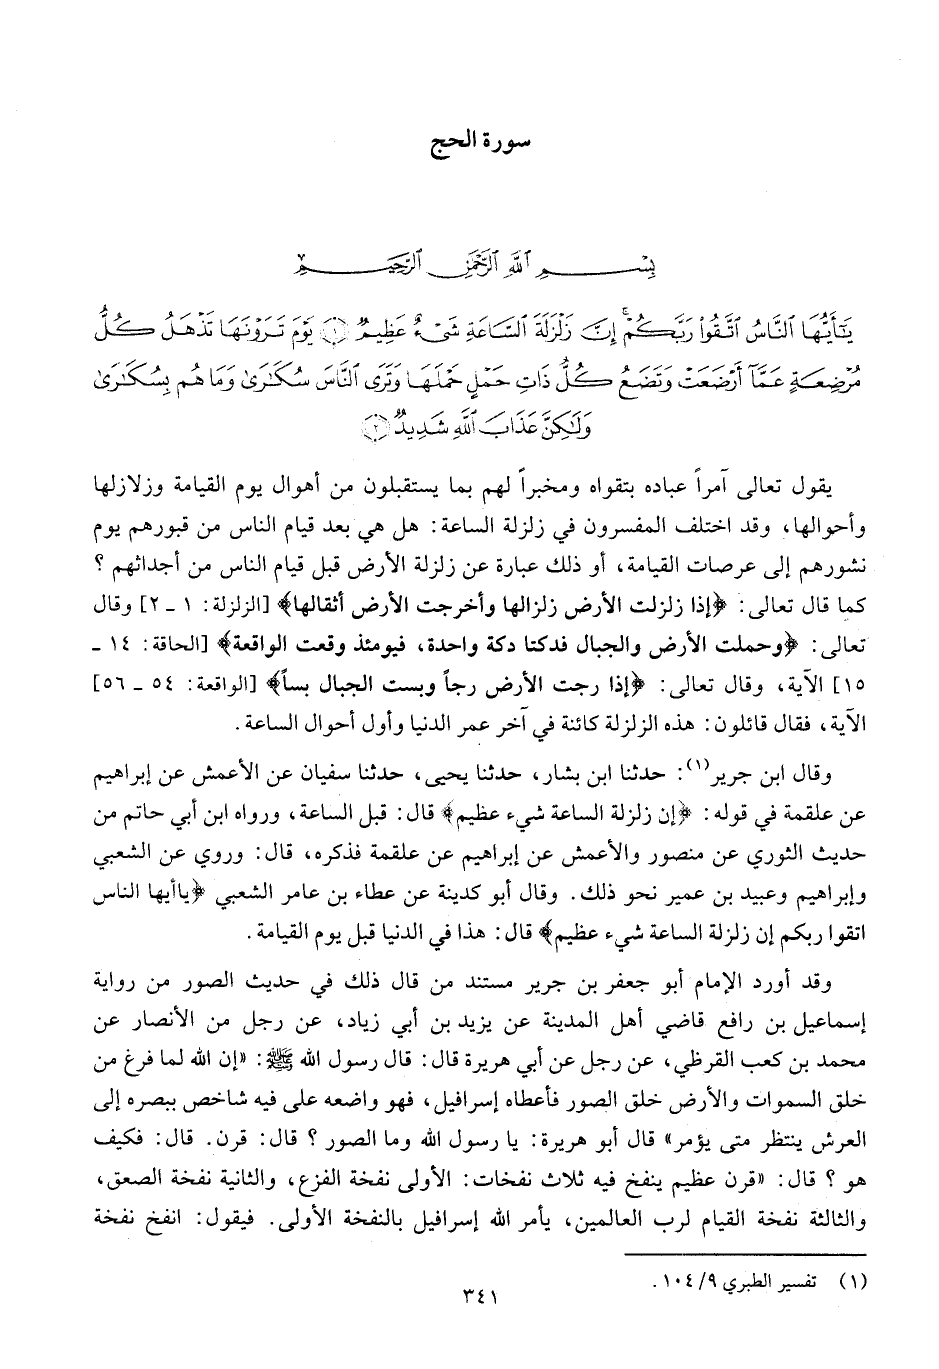 سورة الحج
بِسْمِ ٱللَّهِ ٱلرَّحْمَٰنِ ٱلرَّحِيمِ
يَٰٓأَيُّهَا ٱلنَّاسُ ٱتَّقُوا۟ رَبَّكُمْ ۚ إِنَّ زَلْزَلَةَ ٱلسَّاعَةِ شَىْءٌ عَظِيمٌ ﴿١﴾ يَوْمَ تَرَوْنَهَا تَذْهَلُ كُلُّ
مُرْضِعَةٍ عَمَّآ أَرْضَعَتْ وَتَضَعُ كُلُّ ذَاتِ حَمْلٍ حَمْلَهَا وَتَرَى ٱلنَّاسَ سُكَٰرَىٰ وَمَا هُم بِسُكَٰرَىٰ
وَلَٰكِنَّ عَذَابَ ٱللَّهِ شَدِيدٌ ﴿٢﴾
يقول تعالى آمراً عباده بتقواه ومخبراً لهم بما يستقبلون من أهوال يوم القيامة وزلازلها
وأحوالها، وقد اختلف المفسرون في زلزلة الساعة: هل هي بعد قيام الناس من قبورهم يوم
نشورهم إلى عرصات القيامة، أو ذلك عبارة عن زلزلة الأرض قبل قيام الناس من أجداثهم ؟
كما قال تعالى: ﴿إذا زلزلت الأرض زلزالها وأخرجت الأرض أثقالها﴾ [الزلزلة: ١ - ٢] وقال
تعالى: ﴿وحملت الأرض والجبال فدكتا دكة واحدة، فيومئذ وقعت الواقعة﴾ [الحاقة: ١٤ -
١٥] الآية، وقال تعالى: ﴿إذا رجت الأرض رجاً وبست الجبال بساً﴾ [الواقعة: ٥٤ - ٥٦]
الآية، فقال قائلون: هذه الزلزلة كائنة في آخر عمر الدنيا وأول أحوال الساعة.
وقال ابن جرير(١): حدثنا ابن بشار، حدثنا يحيى، حدثنا سفيان عن الأعمش عن إبراهيم
عن علقمة في قوله: ﴿إن زلزلة الساعة شيء عظيم﴾ قال: قبل الساعة، ورواه ابن أبي حاتم من
حديث الثوري عن منصور والأعمش عن إبراهيم عن علقمة فذكره، قال: وروي عن الشعبي
وإبراهيم وعبيد بن عمير نحو ذلك. وقال أبو كدينة عن عطاء بن عامر الشعبي ﴿ياأيها الناس
اتقوا ربكم إن زلزلة الساعة شيء عظيم﴾ قال: هذا في الدنيا قبل يوم القيامة.
وقد أورد الإمام أبو جعفر بن جرير مستند من قال ذلك في حديث الصور من رواية
إسماعيل بن رافع قاضي أهل المدينة عن يزيد بن أبي زياد، عن رجل من الأنصار عن
محمد بن كعب القرظي، عن رجل عن أبي هريرة قال: قال رسول الله ﷺ: «إن الله لما فرغ من
خلق السموات والأرض خلق الصور فأعطاه إسرافيل، فهو واضعه على فيه شاخص ببصره إلى
العرش ينتظر متى يؤمر» قال أبو هريرة: يا رسول الله وما الصور ؟ قال: قرن. قال: فكيف
هو ؟ قال: «قرن عظيم ينفخ فيه ثلاث نفخات: الأولى نفخة الفزع، والثانية نفخة الصعق،
والثالثة نفخة القيام لرب العالمين، يأمر الله إسرافيل بالنفخة الأولى. فيقول: انفخ نفخة
(١) تفسير الطبري ٩/ ١٠٤.
٣٤١